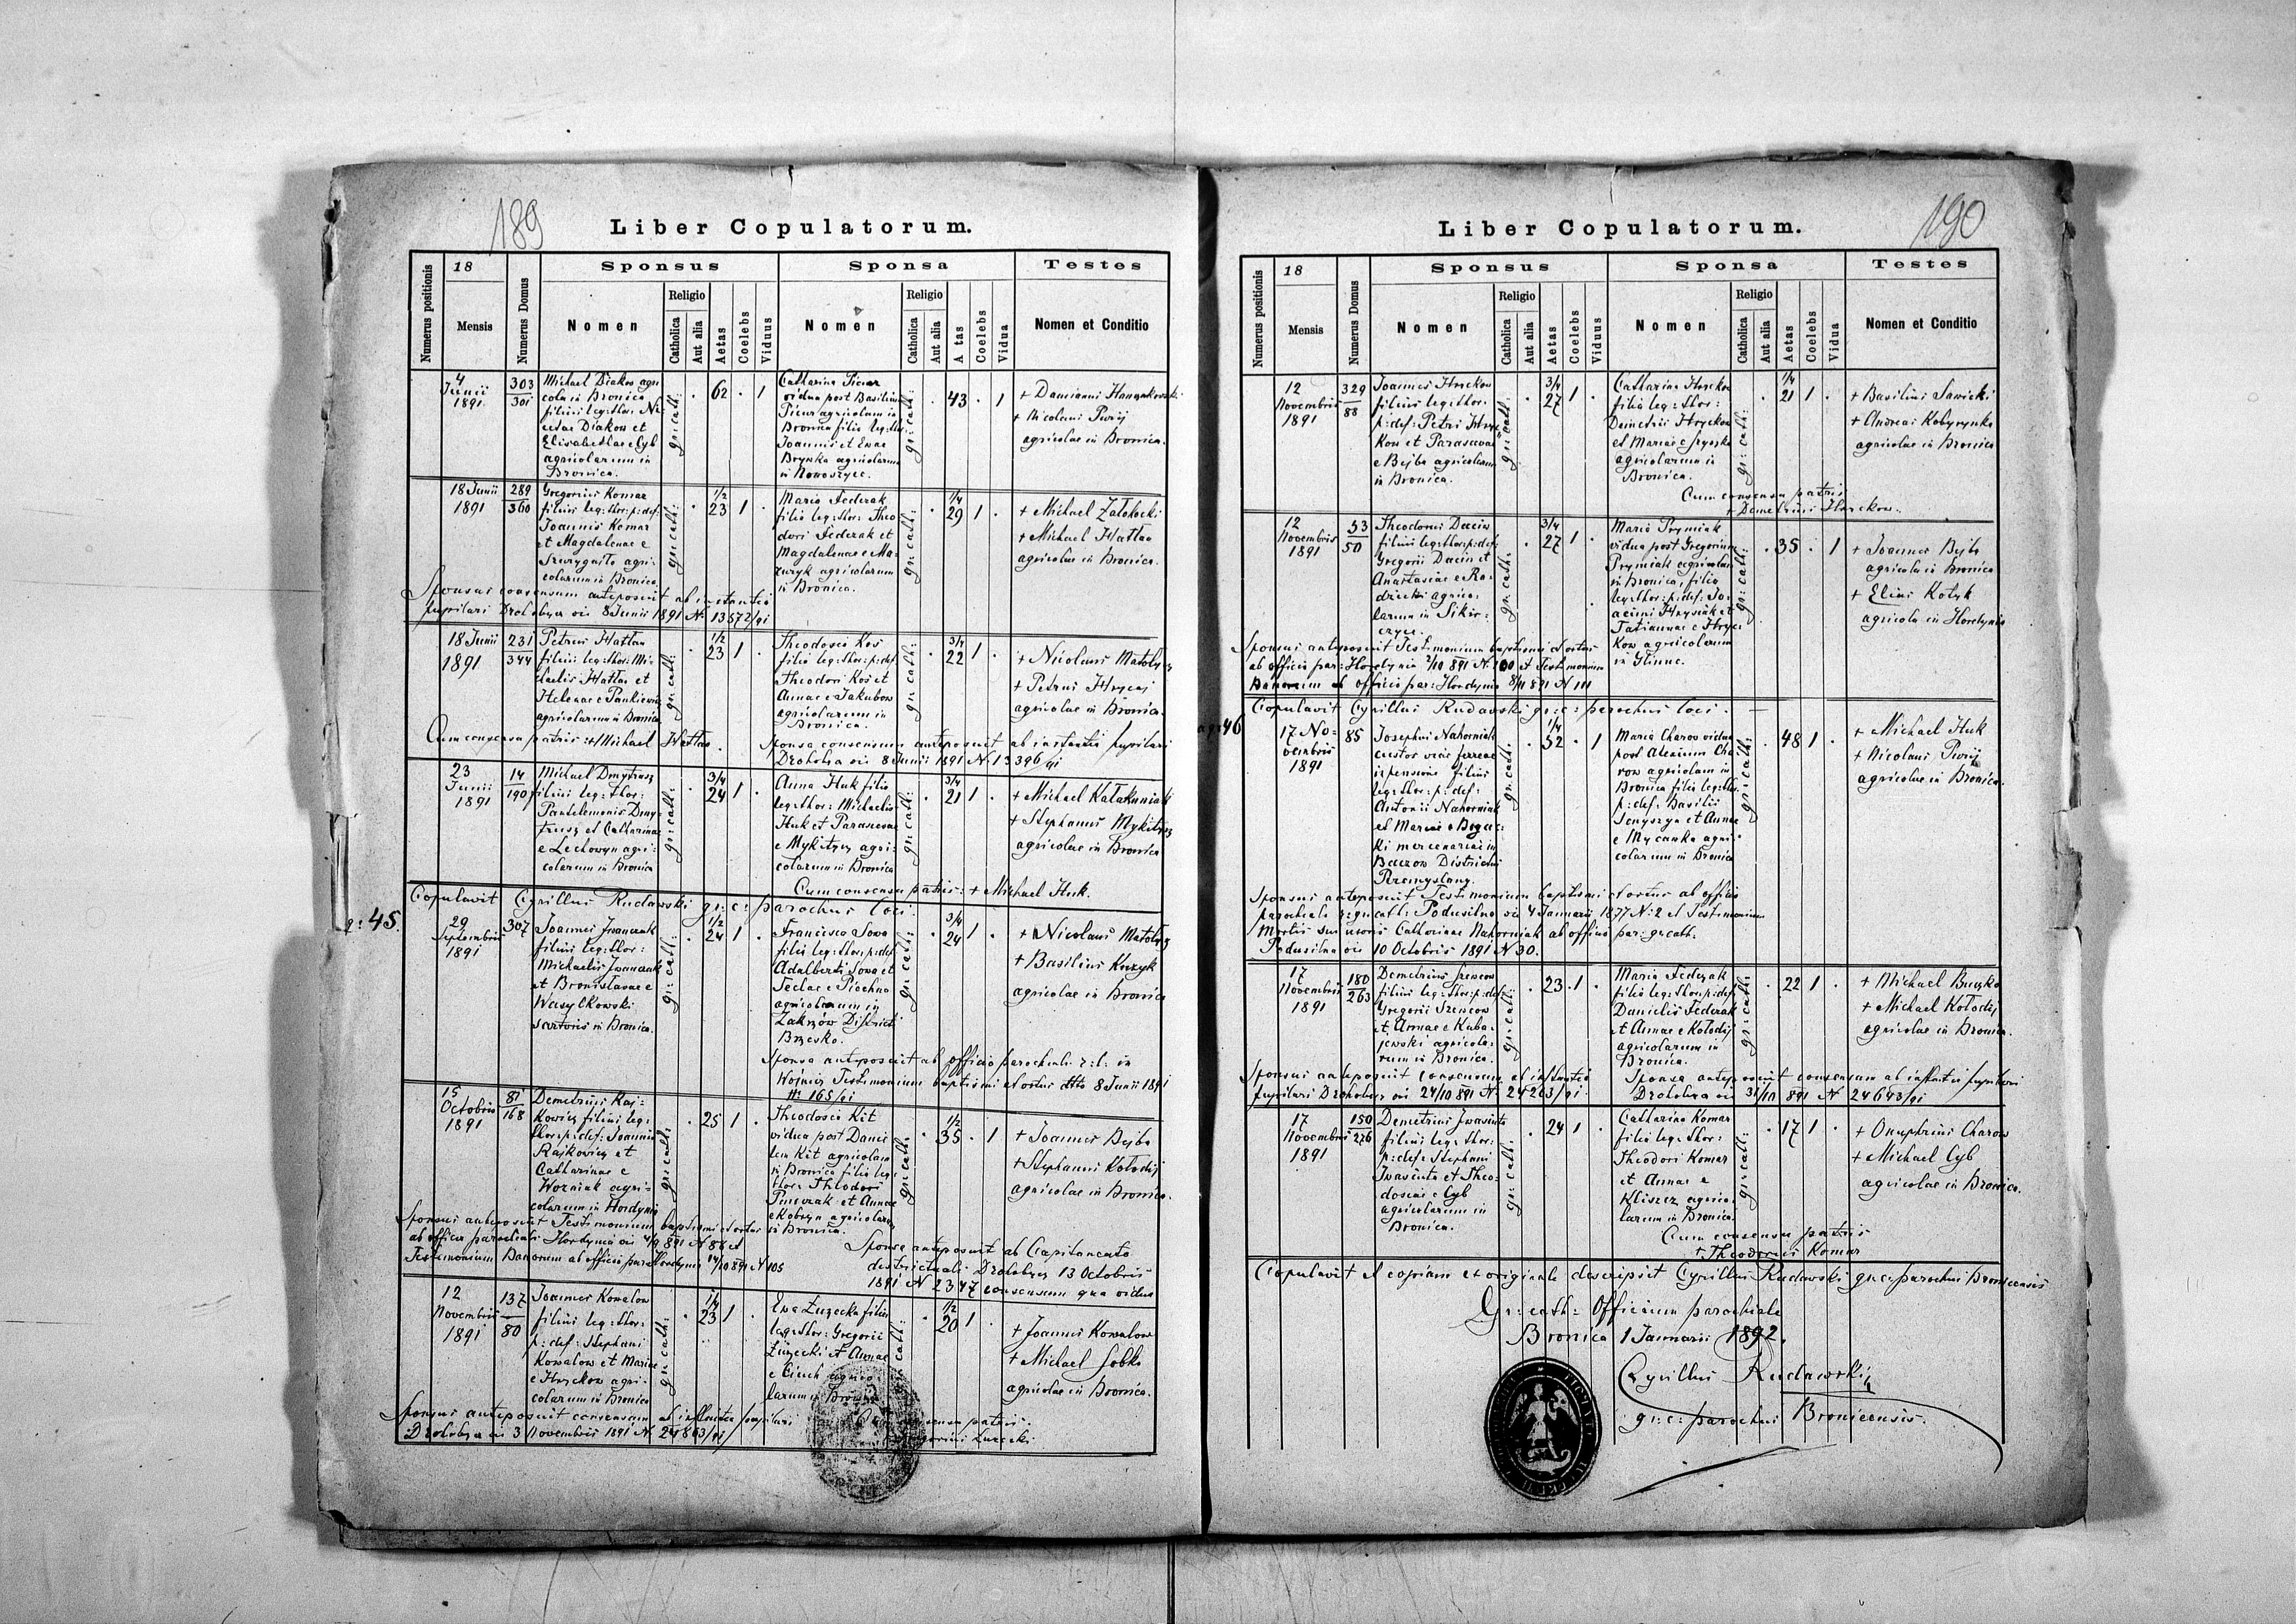 189
Liber Copulatorum.
Numerus positionis
18
Mensis
Numerus Domus
Sponsus
Nomen
Religio
Catholica
Aut alia
Aetas
Coelebs
Viduus
Sponsa
Nomen
Religio
Catholica
Aut alia
A tas
Coelebs
Vidua
Testes
Nomen et Conditio
4
Junii
1891
303
301
Michael Diakow agri
cola in Bronica
filius leg: thor: Ni
cetae Diakow et
Elisabethae e Cyb
agricolarum in
Bronica.
gr: cath:
62
1
Catharina
vidua post Basilium
agricolam in
Bronica filia leg: thor:
Joannis et Evae
Brynka agricolarum
in Nowoszyce.
gr: cath:
43
1
+ Damianus
+ Nicolaus
agricolae in Bronica.
18 Junii
1891
289
360
Gregorius Komar
filius leg: thor: p: def:
Joannis Komar
et Magdalenae e
agri-
colarum in Bronica
gr: cath:
1/2
23
1
Maria Federak
filia leg: thor: Theo
dori Federak et
Magdalenae e Ma-
zuryk agricolarum
in Bronica.
gr: cath:
1/4
29
1
+ Michael Załokocki
+ Michael Hatłan
agricolae in Bronica.
Sponsus consensum anteposuit ab instantia
pupilari Drohobycz 8 Junii 1891 N: 13572/91
18 Junii
1891
231
344
Petrus Hatłan
filius leg: thor: Mi-
chaelis Hatłan et
Helenae e Pankiewicz
agricolarum in Bronica
gr: cath:
1/2
23
1
Theodosia Koś
filia leg: thor: p: def:
Theodori Koś et
Annae e Jakubow
agricolarum in
Bronica.
gr: cath:
3/4
22
1
+ Nicolaus Matołycz
+ Petrus Hrycaj
agricolae in Bronica.
Cum consensu patris: + Michael Hatłan.
Sponsa consensum anteposuit ab instantia pupilari
Drohobycz 8 Junii 1891 N. 13396/91
23
Junii
1891
14
190
Michael Dmytrasz
filius leg: thor:
Pantelemonis Dmy-
trasz et Catharinae
e Lechowyn agri-
colarum in Bronica
gr: cath:
3/4
24
1
Anna Huk filia
leg: thor: Michaelis
Huk et Parascevae
e Mykitycz agri-
colarum in Bronica
gr: cath:
3/4
21
1
+ Michael Kałakuniak
+ Stephanus Mykitycz
agricolae in Bronica
Cum consensu patris: + Michael Huk.
Copulavit Cyrillus Rudawski gr: c: parochus loci.
45
29
Septembris
1891
307
Joannes Iwanczak
filius leg: thor:
Michaelis Iwanczak
et Bronislavae e
Wasylkowski
sartoris in Bronica.
gr: cath:
1/2
24
1
Francisca Sowa
filia leg: thor: p: def:
Adalberti Sowa et
Teclae e Piechna
agricolarum in
Zakrzów Districti
Brzesko.
gr: cath:
3/4
24
1
+ Nicolaus Matołycz
+ Basilius Kuzyk
agricolae in Bronica
Sponsa anteposuit ab officio parochiali r: l: in
Wojnicz Testimonium baptismi et ortus dtto 8 Junii 1891
N: 165/91
15
Octobris
1891
81
168
Demetrius Raj-
kowicz filius leg:
thor: p: def: Joannis
Rajkowicz et
Catharinae e
Wozniak agri-
colarum in Hordynia
gr: cath:
25
1
Theodosia Kit
vidua post Danie
lem Kit agricolam
in Bronica filia leg:
thor: Theodori
et Annae
e Kobryn agricolarum
in Bronica.
gr: cath:
1/2
35
1
+ Joannes Bejba
+ Stephanus Kołodij
agricolae in Bronica.
Sponsus anteposuit Testimonium baptismi et ortus
ab officio parochiali Hordynia 4/9 891 N 86 et
Testimonium Bannorum ab officio par: Hordynia 14/10 891 N 105
Sponsa anteposuit ab Capitaneatu
districtuali Drohobycz 13 Octobris
1891 N 2347 consensum qua vidua
12
Novembris
1891
137
80
Joannes Kowalow
filius leg: thor:
p: def: Stephani
Kowalow et Mariae
e Hryckow agri-
colarum in Bronica
gr: cath:
1/4
23
1
Ewa Łuzecka filia
leg: thor: Gregorii
Łuzecki et Annae
e Ciuch agrico
larum in Bronica
gr: cath:
1/2
20
1
+ Joannes Kowalow
+ Michael Sobko
agricolae in Bronica.
Sponsus anteposuit consensum ab instantia pupilari
Drohobycz 3 Novembris 1891 N. 24863/91
Cum consensu patris:
Gregorius Łuzecki
190
Liber Copulatorum.
Numerus positionis
18
Mensis
Numerus Domus
Sponsus
Nomen
Religio
Catholica
Aut alia
Aetas
Coelebs
Viduus
Sponsa
Nomen
Religio
Catholica
Aut alia
Aetas
Coelebs
Vidua
Testes
Nomen et Conditio
12
Novembris
1891
329
88
Joannes Hryckow
filius leg: thor:
p: def: Petri Hryc-
kow et Parascevae
e Bejba agricolarum
in Bronica.
gr: cath:
3/4
27
1
Catharina Hryckow
filia leg: thor:
Demetrii Hryckow
et Mariae e
agricolarum in
Bronica.
gr: cath:
1/4
21
1
+ Basilius Sawicki
+ Andreas Kobyrynka
agricolae in Bronica
Cum consensu patris
+ Demetrius Hryckow.
12
Novembris
1891
53
50
Theodorus Daciw
filius leg: thor: p: def:
Gregorii Daciw et
Anastasiae e Ra-
dzicki agrico-
larum in
gr: cath:
3/4
27
1
Maria Prymiak
vidua post Gregorium
Prymiak agricolam
in Bronica, filia
leg: thor: p: def: Jo-
acimi Hrysiak et
Tatiannae e Hryc
kow agricolarum
in Glinne.
gr: cath:
35
1
+ Joannes Bejba
agricola in Bronica
+ Elias Kotyk
agricola in Hordynia
Sponsus anteposuit Testimonium baptismi et ortus
ab officio par: Hordynia 2/10 891 N. 100 et Testimonium
Bannorum ab officio par: Hordynia 8/11 891 N 111
Copulavit Cyrillus Rudawski gr: c: parochus loci.
46
17 No-
vembris
1891
85
Josephus Nahorniak
custos viae ferreae
in pensione filius
leg: thor: p: def:
Antonii Nahorniak
et Mariae e Bogac-
ki mercenariae in
Districtus
Przemyslany.
gr: cath:
1/4
52
1
Maria Charow vidua
post Alexium Cha
row agricolam in
Bronica filia leg: thor:
p: def: Basilii
Senyszyn et Annae
e Mycanka agri-
colarum in Bronica
gr: cath:
48
1
+ Michael Huk
+ Nicolaus
agricolae in Bronica.
Sponsus anteposuit Testimonium baptismi et ortus ab officio
parochiali gr: cath: Podusilna 4 Januarii 1877 N: 2 et Testimonium
Mortis suae uxoris Catharinae Nahorniak ab officio par: gr: cath:
Podusilna 10 Octobris 1891 N 30.
17
Novembris
1891
180
263
Demetrius Szencow
filius leg: thor: p: def:
Gregorii Szencow
et Annae e Kuba-
jewski agricola-
rum in Bronica.
gr: cath:
23
1
Maria Federak
filia leg: thor: p: def:
Danielis Federak
et Annae e Kołodij
agricolarum in
Bronica.
gr: cath:
22
1
+ Michael Buczko
+ Michael Kołodij
agricolae in Bronica.
Sponsus anteposuit consensum ab instantia
pupilari Drohobycz 24/10 891 N. 24263/91.
Sponsa anteposuit consensum ab instantia pupilari
Drohobycz 31/10 891 N 24643/91
17
Novembris
1891
150
276
Demetrius Iwasiuta
filius leg: thor:
p: def: Stephani
Iwasiuta et Theo-
dosiae e Cyb
agricolarum in
Bronica.
gr: cath:
24
1
Catharina Komar
filia leg: thor:
Theodori Komar
et Annae e
Kliszcz agrico-
larum in Bronica.
gr: cath:
17
1
+ Onuphrius Charow
+ Michael Cyb
agricolae in Bronica.
Cum consensu patris
+ Theodorus Komar
Copulavit et copiam ex originale descripsit Cyrillus Rudawski gr: c: parochus Bronicensis
Gr: cath: Officium parochiale
Bronica 1 Januarii 1892.
Cyrillus Rudawski
gr: c: parochus Bronicensis.